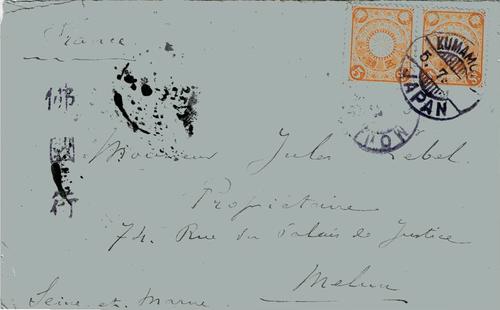 France
佛
國
行
5
KUMAMO
5. 7.
JAPAN
Monsieur Jules Lebel
Propriétaire
74. Rue du Palais de Justice
Melun
Seine-et-Marne